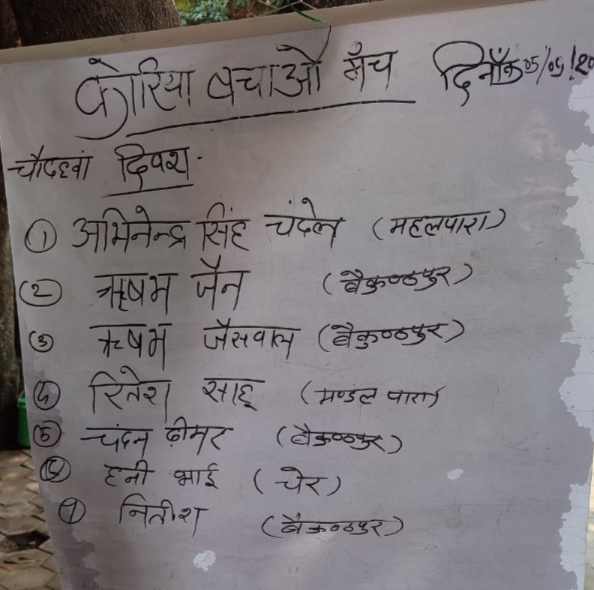 कोरिया बचाओ मँच दिनाँक 05/09/20
चौदहवां दिवश.
① अभिनेन्द्र सिंह चंदेल (महलपारा)
② ऋषभ जैन (बैकुण्ठपुर)
③ ऋषभ जैसवाल (बैकुण्ठपुर)
④ रितेश साहू (मण्डल पारा)
⑤ चंदन ढीमर (बैकुण्ठपुर)
⑥ हनी भाई (चेर)
⑦ नितीश (बैकुण्ठपुर)